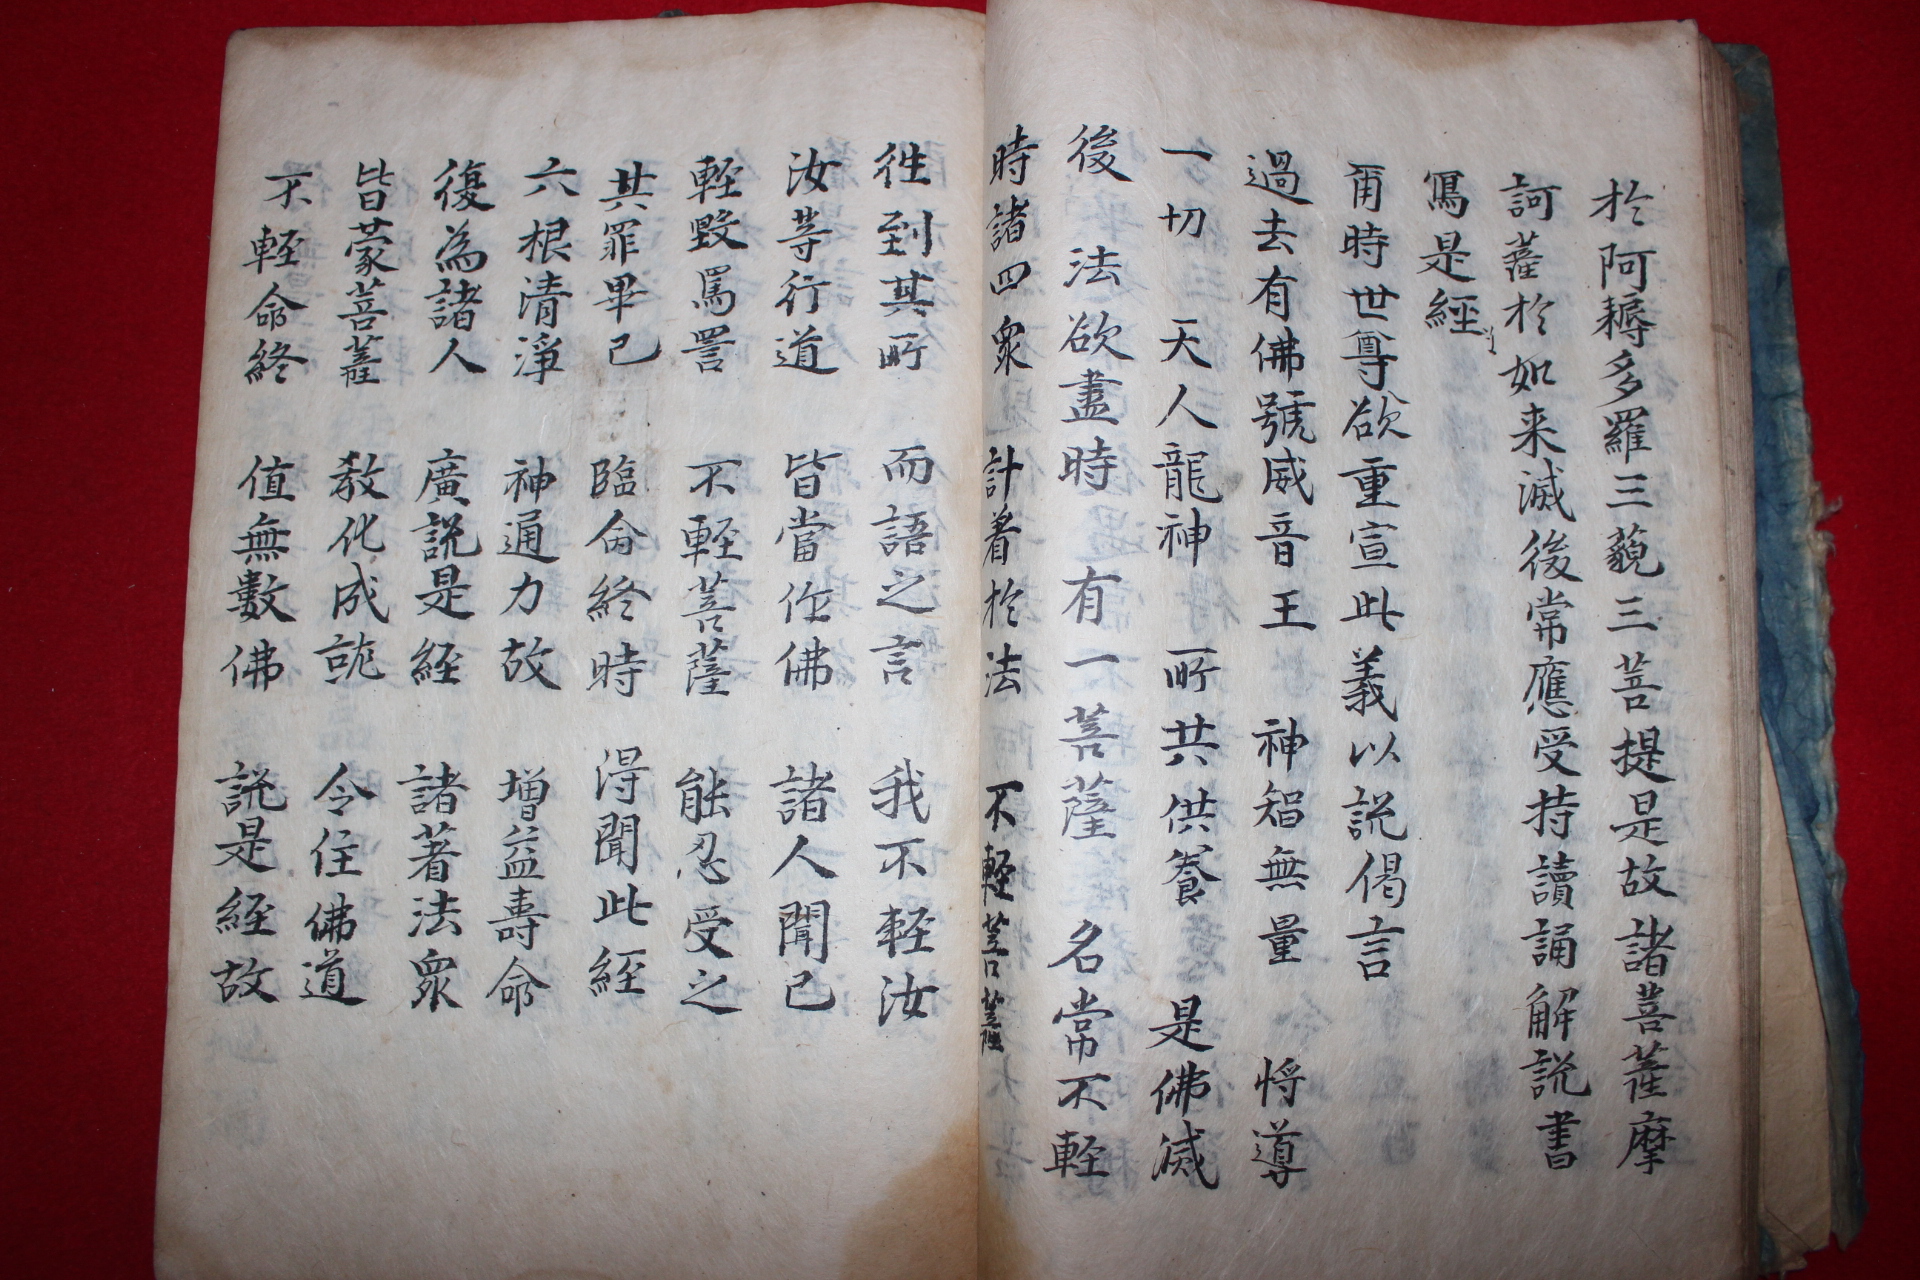 於阿耨多羅三藐三菩提是故諸菩薩摩
訶薩於如来滅後常應受持讀誦解說書
寫是經
爾時世尊欲重宣此義以說偈言
過去有佛號威音王 神智無量 将導
一切 天人龍神 所共供養 是佛滅
後 法欲盡時 有一菩薩 名常不輕
時諸四衆 計着於法 不輕菩薩
徃到其所 而語之言 我不輕汝
汝等行道 皆當作佛 諸人聞已
輕毀罵詈 不輕菩薩 能忍受之
其罪畢已 臨命終時 得聞此經
六根清淨 神通力故 增益壽命
復為諸人 廣說是經 諸著法衆
皆蒙菩薩 教化成就 令住佛道
不輕命終 值無數佛 說是經故